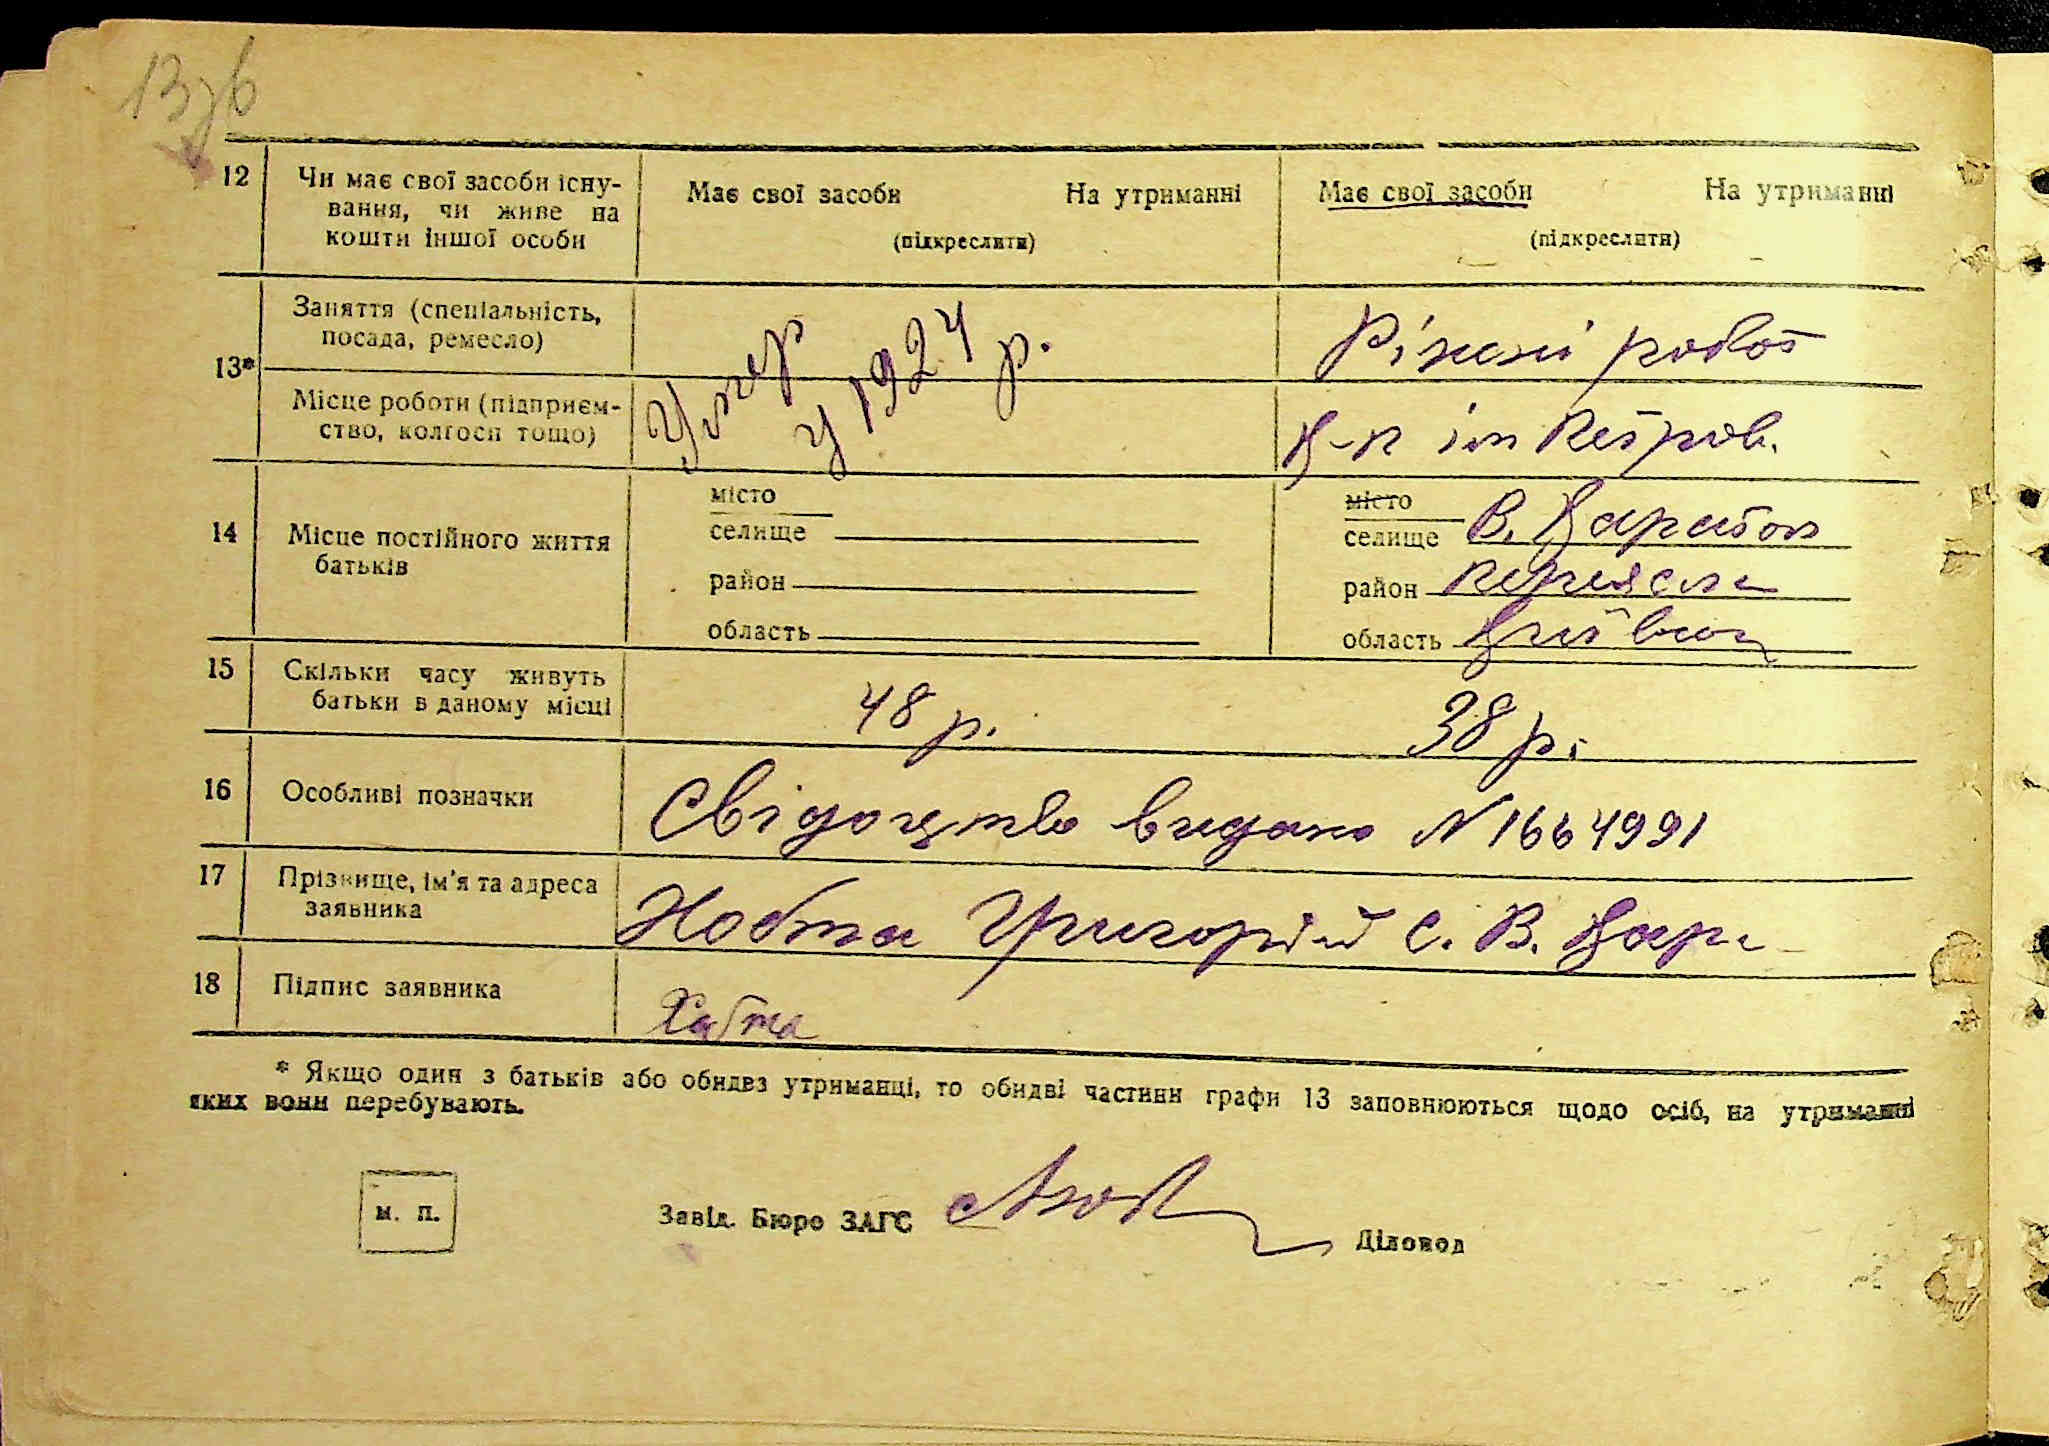 13зв
12 Чи має свої засоби існу-
вання, чи живе на
кошти іншої особи
Має свої засоби На утриманні
(підкреслити)
Має свої засоби На утриманні
(підкреслити)
13*
Заняття (спеціальність,
посада, ремесло)
Умер
у 1924 р.
Ріжні робот
Місце роботи (підприєм-
ство, колгосп тощо)
К-п ім Петров.
14 Місце постійного життя
батьків
місто
селище
район
область
місто
селище В. Каратом
район Переясла
область Київськ
15 Скільки часу живуть
батьки в даному місці
48 р. 38 р.
16 Особливі позначки
Свідоцтво видано N 1664991
17 Прізвище, ім'я та адреса
заявника
Хобта Григорій С. В. Кара
18 Підпис заявника
Хабта
* Якщо один з батьків або обидвз утриманці, то обидві частини графи 13 заповнюються щодо осіб, на утриманні
яких вони перебувають.
м. п.
Завід. Бюро ЗАГС
Діловод